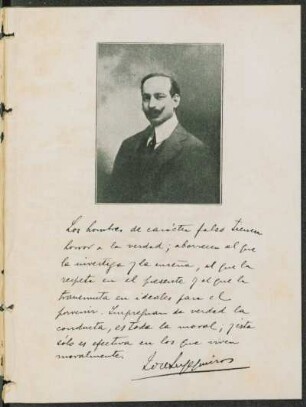 Los hombres de carácter falso tienen
horror a la verdad; aborrecen al que
la investiga y la enseña, al que la
respeta en el presente y al que la
transmuta en ideales para el
porvenir. Impregnar de verdad la
conducta, es toda la moral, y ésta
sólo es efectiva en los que viven
moralmente.
José Ingenieros